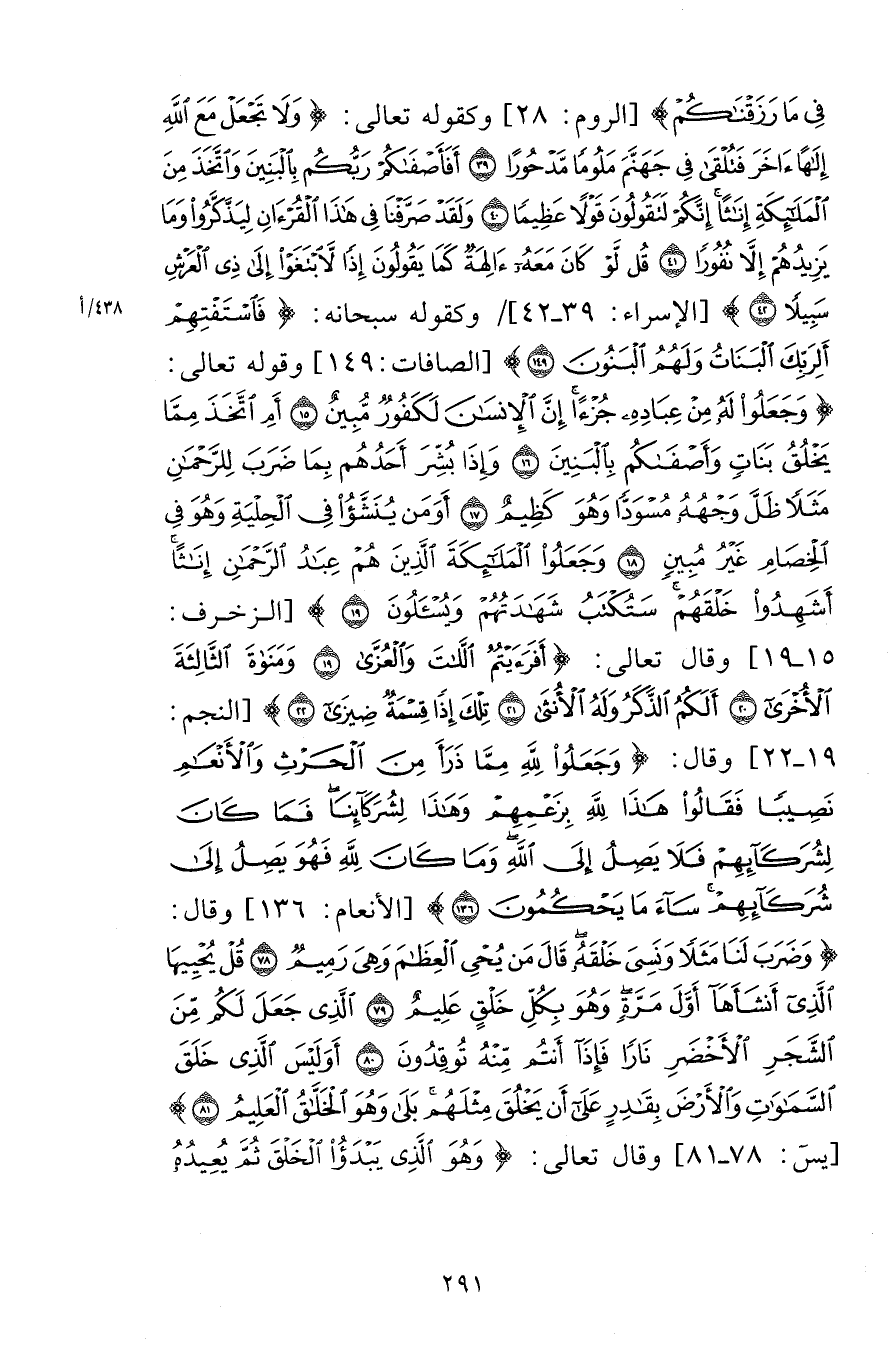 فِى مَا رَزَقْنَٰكُمْ﴾ [الروم: ٢٨] وكقوله تعالى: ﴿ وَلَا تَجْعَلْ مَعَ ٱللَّهِ
إِلَٰهًا ءَاخَرَ فَتُلْقَىٰ فِى جَهَنَّمَ مَلُومًا مَّدْحُورًا ٣٩ أَفَأَصْفَىٰكُمْ رَبُّكُم بِٱلْبَنِينَ وَٱتَّخَذَ مِنَ
ٱلْمَلَٰٓئِكَةِ إِنَٰثًا ۚ إِنَّكُمْ لَتَقُولُونَ قَوْلًا عَظِيمًا ٤٠ وَلَقَدْ صَرَّفْنَا فِى هَٰذَا ٱلْقُرْءَانِ لِيَذَّكَّرُوا۟ وَمَا
يَزِيدُهُمْ إِلَّا نُفُورًا ٤١ قُل لَّوْ كَانَ مَعَهُۥٓ ءَالِهَةٌ كَمَا يَقُولُونَ إِذًا لَّٱبْتَغَوْا۟ إِلَىٰ ذِى ٱلْعَرْشِ
سَبِيلًا ٤٢ ﴾ [الإسراء: ٣٩ـ٤٢]/ وكقوله سبحانه: ﴿ فَٱسْتَفْتِهِمْ
٤٣٨/أ
أَلِرَبِّكَ ٱلْبَنَاتُ وَلَهُمُ ٱلْبَنُونَ ١٤٩ ﴾ [الصافات: ١٤٩] وقوله تعالى:
﴿ وَجَعَلُوا۟ لَهُۥ مِنْ عِبَادِهِۦ جُزْءًا ۚ إِنَّ ٱلْإِنسَٰنَ لَكَفُورٌ مُّبِينٌ ١٥ أَمِ ٱتَّخَذَ مِمَّا
يَخْلُقُ بَنَاتٍ وَأَصْفَىٰكُم بِٱلْبَنِينَ ١٦ وَإِذَا بُشِّرَ أَحَدُهُم بِمَا ضَرَبَ لِلرَّحْمَٰنِ
مَثَلًا ظَلَّ وَجْهُهُۥ مُسْوَدًّا وَهُوَ كَظِيمٌ ١٧ أَوَمَن يُنَشَّؤُا۟ فِى ٱلْحِلْيَةِ وَهُوَ فِى
ٱلْخِصَامِ غَيْرُ مُبِينٍ ١٨ وَجَعَلُوا۟ ٱلْمَلَٰٓئِكَةَ ٱلَّذِينَ هُمْ عِبَٰدُ ٱلرَّحْمَٰنِ إِنَٰثًا ۚ
أَشَهِدُوا۟ خَلْقَهُمْ ۚ سَتُكْتَبُ شَهَٰدَتُهُمْ وَيُسْـَٔلُونَ ١٩ ﴾ [الزخرف:
١٥ـ١٩] وقال تعالى: ﴿أَفَرَءَيْتُمُ ٱللَّٰتَ وَٱلْعُزَّىٰ ١٩ وَمَنَوٰةَ ٱلثَّالِثَةَ
ٱلْأُخْرَىٰٓ ٢٠ أَلَكُمُ ٱلذَّكَرُ وَلَهُ ٱلْأُنثَىٰ ٢١ تِلْكَ إِذًا قِسْمَةٌ ضِيزَىٰٓ ٢٢ ﴾ [النجم:
١٩ـ٢٢] وقال: ﴿ وَجَعَلُوا۟ لِلَّهِ مِمَّا ذَرَأَ مِنَ ٱلْحَرْثِ وَٱلْأَنْعَٰمِ
نَصِيبًا فَقَالُوا۟ هَٰذَا لِلَّهِ بِزَعْمِهِمْ وَهَٰذَا لِشُرَكَآئِنَا ۖ فَمَا كَانَ
لِشُرَكَآئِهِمْ فَلَا يَصِلُ إِلَى ٱللَّهِ ۖ وَمَا كَانَ لِلَّهِ فَهُوَ يَصِلُ إِلَىٰ
شُرَكَآئِهِمْ ۗ سَآءَ مَا يَحْكُمُونَ ١٣٦ ﴾ [الأنعام: ١٣٦] وقال:
﴿ وَضَرَبَ لَنَا مَثَلًا وَنَسِىَ خَلْقَهُۥ ۖ قَالَ مَن يُحْىِ ٱلْعِظَٰمَ وَهِىَ رَمِيمٌ ٧٨ قُلْ يُحْيِيهَا
ٱلَّذِىٓ أَنشَأَهَآ أَوَّلَ مَرَّةٍ ۖ وَهُوَ بِكُلِّ خَلْقٍ عَلِيمٌ ٧٩ ٱلَّذِى جَعَلَ لَكُم مِّنَ
ٱلشَّجَرِ ٱلْأَخْضَرِ نَارًا فَإِذَآ أَنتُم مِّنْهُ تُوقِدُونَ ٨٠ أَوَلَيْسَ ٱلَّذِى خَلَقَ
ٱلسَّمَٰوَٰتِ وَٱلْأَرْضَ بِقَٰدِرٍ عَلَىٰٓ أَن يَخْلُقَ مِثْلَهُم ۚ بَلَىٰ وَهُوَ ٱلْخَلَّٰقُ ٱلْعَلِيمُ ٨١ ﴾
[يسٓ: ٧٨ـ٨١] وقال تعالى: ﴿ وَهُوَ ٱلَّذِى يَبْدَؤُا۟ ٱلْخَلْقَ ثُمَّ يُعِيدُهُۥ
٢٩١